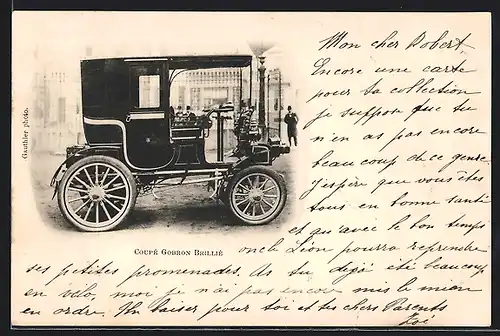 Mon cher Robert
Encore une carte
pour ta collection
je suppose que tu
n'en as pas encore
beaucoup de ce genre
J'espère que vous êtes
tous en bonne santé
et qu'avec le bon temps
Gauthier photo.
COUPÉ GOBRON BRILLIÉ
oncle Léon pourra reprendre
ses petites promenades. As tu déjà été beaucoup
en vélo, moi je n'ai pas encore mis le mien
en ordre. Un baiser pour toi et tes chers Parents